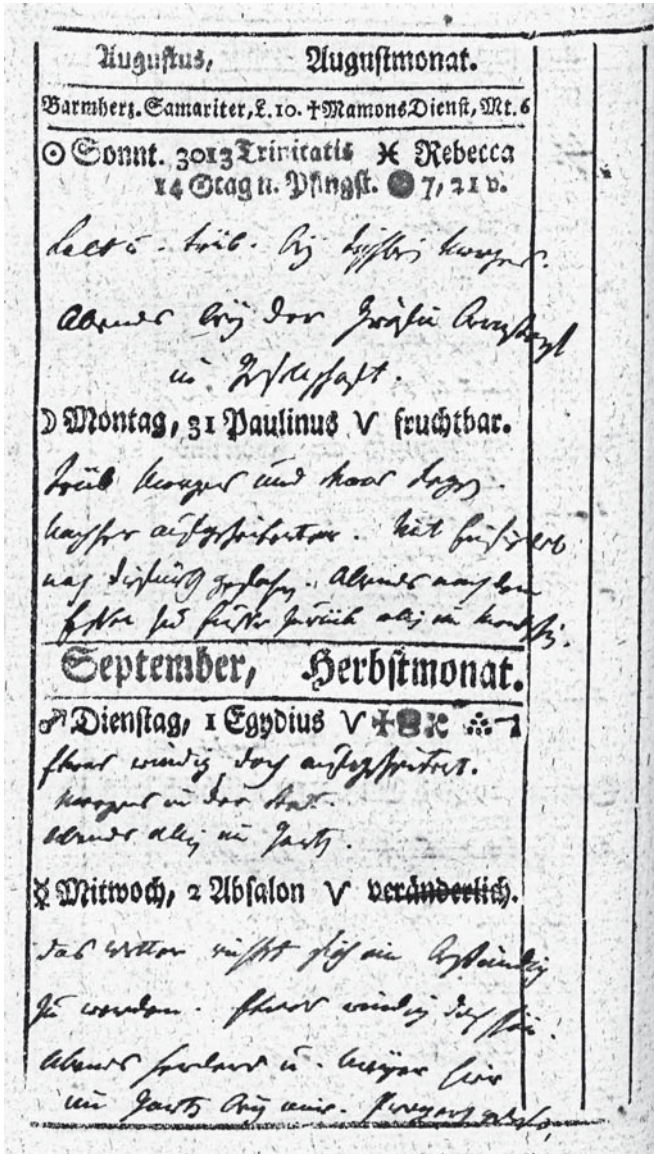 Augustus, Augustmonat.
Barmherz. Samariter, L. 10. ✝Mamons Dienst, Mt. 6
☉ Sonnt. 30 13 Trinitatis ♓ Rebecca
14 Stag n. Pfingst. 7, 21 v.
Kalt u. trüb. bei Morgens.
Abends bey der Gräfin
in Gesellschaft.
☽ Montag, 31 Paulinus ♈ fruchtbar.
trüb Morgens und
nachher aufgeheiterter. Mit
nach Abends nach dem
Essen zu Fusse zurück allein im
September, Herbstmonat.
♂ Dienstag, 1 Egydius ♈
Etwas windig doch aufgeheitert.
Morgens in der Stadt.
Abends allein im Garten.
☿ Mittwoch, 2 Absalon ♈ veränderlich.
das Wetter sich ein beständig
zu werden. Etwas windig doch schön.
Abends Herders u. Meyer hier
im Garten bey mir.